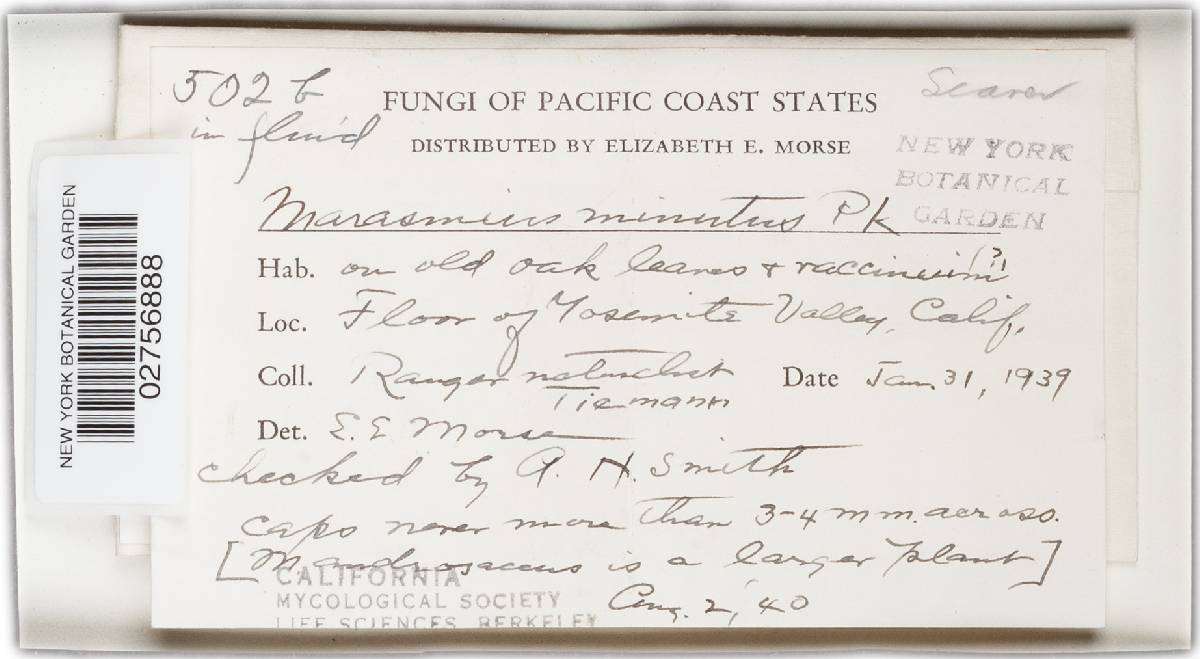 502 b
in fluid
FUNGI OF PACIFIC COAST STATES
DISTRIBUTED BY ELIZABETH E. MORSE
Seaver
NEW YORK
BOTANICAL
GARDEN
Marasmius minutus Pk
Hab. on old oak leaves & vaccinium (?)
Loc. Floor of Yosemite Valley, Calif.
Coll. Ranger naturalist Date Jan. 31, 1939
Tiemann
Det. E. E Morse
checked by A. H. Smith
caps never more than 3-4 mm. across.
[M. androsaceus is a larger plant]
Aug. 2, '40
CALIFORNIA
MYCOLOGICAL SOCIETY
LIFE SCIENCES, BERKELEY
NEW YORK BOTANICAL GARDEN
02756888